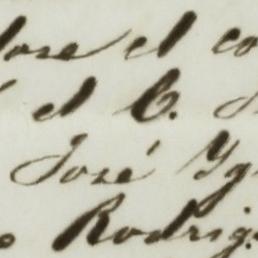 dose el co
el C.
José Yg
Rodrig